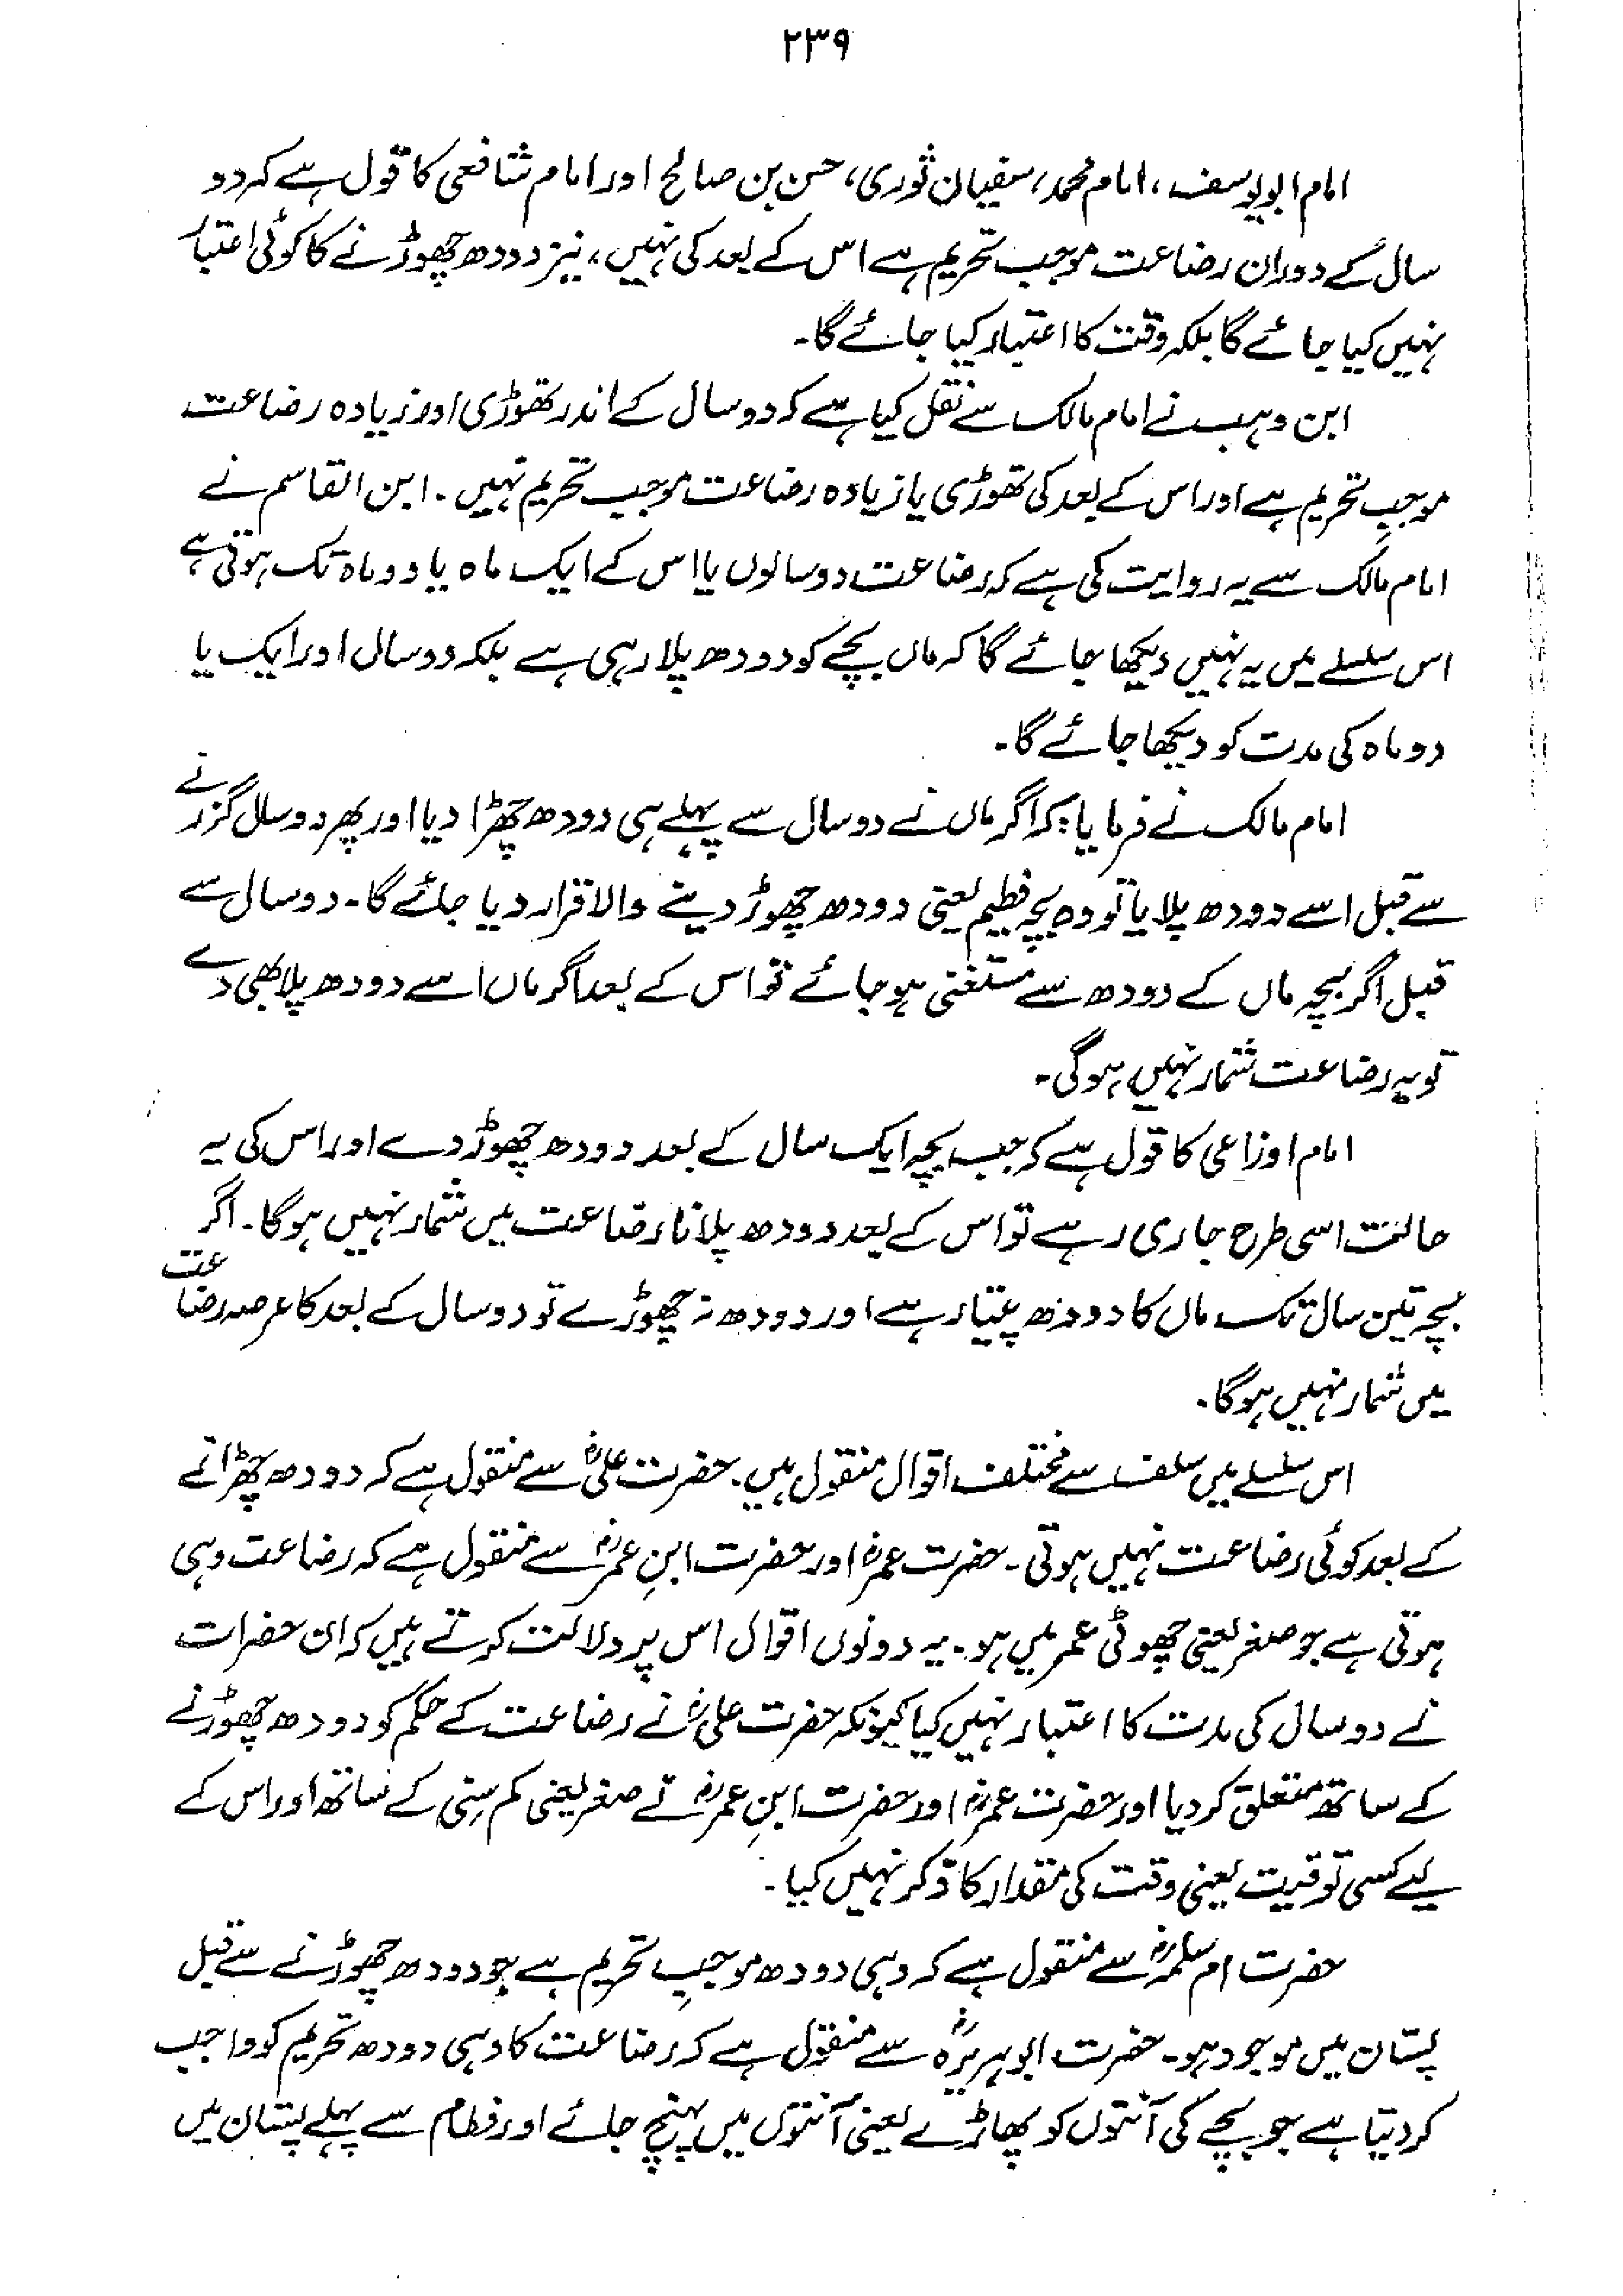 ۲۳۹
امام ابویوسف، امام محمد، سفیان ثوری، حسن بن صالح اور امام شافعی کا قول ہے کہ دو
سال کے دوران رضاعت موجب تحریم ہے اس کے بعد کی نہیں، نیز دودھ چھوڑنے کا کوئی اعتبار
نہیں کیا جائے گا بلکہ وقت کا اعتبار کیا جائے گا۔
ابن وہب نے امام مالک سے نقل کیا ہے کہ دو سال کے اندر تھوڑی اور زیادہ رضاعت
موجبِ تحریم ہے اور اس کے بعد کی تھوڑی یا زیادہ رضاعت موجب تحریم نہیں۔ ابن القاسم نے
امام مالک سے یہ روایت کی ہے کہ رضاعت دو سالوں یا اس کے ایک ماہ یا دو ماہ تک ہوتی ہے
اس سلسلے میں یہ نہیں دیکھا جائے گا کہ ماں بچے کو دودھ پلا رہی ہے بلکہ دو سال اور ایک یا
دو ماہ کی مدت کو دیکھا جائے گا۔
امام مالک نے فرمایا: کہ اگر ماں نے دو سال سے پہلے ہی دودھ چھڑا دیا اور پھر دو سال گزرنے
سے قبل اسے دودھ پلایا تو وہ بچہ فطیم یعنی دودھ چھوڑ دینے والا قرار دیا جائے گا۔ دو سال سے
قبل اگر بچہ ماں کے دودھ سے مستغنی ہو جائے تو اس کے بعد اگر ماں اسے دودھ پلا بھی دے
تو یہ رضاعت شمار نہیں ہوگی۔
امام اوزاعی کا قول ہے کہ جب بچہ ایک سال کے بعد دودھ چھوڑ دے اور اس کی یہ
حالت اسی طرح جاری رہے تو اس کے بعد دودھ پلانا رضاعت میں شمار نہیں ہوگا۔ اگر
بچہ تین سال تک ماں کا دودھ پیتا رہے اور دودھ نہ چھوڑے تو دو سال کے بعد کا عرصہ رضاعت
میں شمار نہیں ہوگا۔
اس سلسلے میں سلف سے مختلف اقوال منقول ہیں۔ حضرت علیؓ سے منقول ہے کہ دودھ چھڑانے
کے بعد کوئی رضاعت نہیں ہوتی۔ حضرت عمرؓ اور حضرت ابنِ عمرؓ سے منقول ہے کہ رضاعت وہی
ہوتی ہے جو صغر یعنی چھوٹی عمر میں ہو۔ یہ دونوں اقوال اس پر دلالت کرتے ہیں کہ ان حضرات
نے دو سال کی مدت کا اعتبار نہیں کیا کیونکہ حضرت علیؓ نے رضاعت کے حکم کو دودھ چھوڑنے
کے ساتھ متعلق کر دیا اور حضرت عمرؓ اور حضرت ابنِ عمرؓ نے صغر یعنی کم سِنی کے ساتھ اور اس کے
لیے کسی توقیت یعنی وقت کی مقدار کا ذکر نہیں کیا۔
حضرت ام سلمہؓ سے منقول ہے کہ وہی دودھ موجبِ تحریم ہے جو دودھ چھوڑنے سے قبل
پستان میں موجود ہو۔ حضرت ابوہریرہؓ سے منقول ہے کہ رضاعت کا وہی دودھ تحریم کو واجب
کر دیتا ہے جو بچے کی آنتوں کو پھاڑے یعنی آنتوں میں پہنچ جائے اور فطام سے پہلے پستان میں